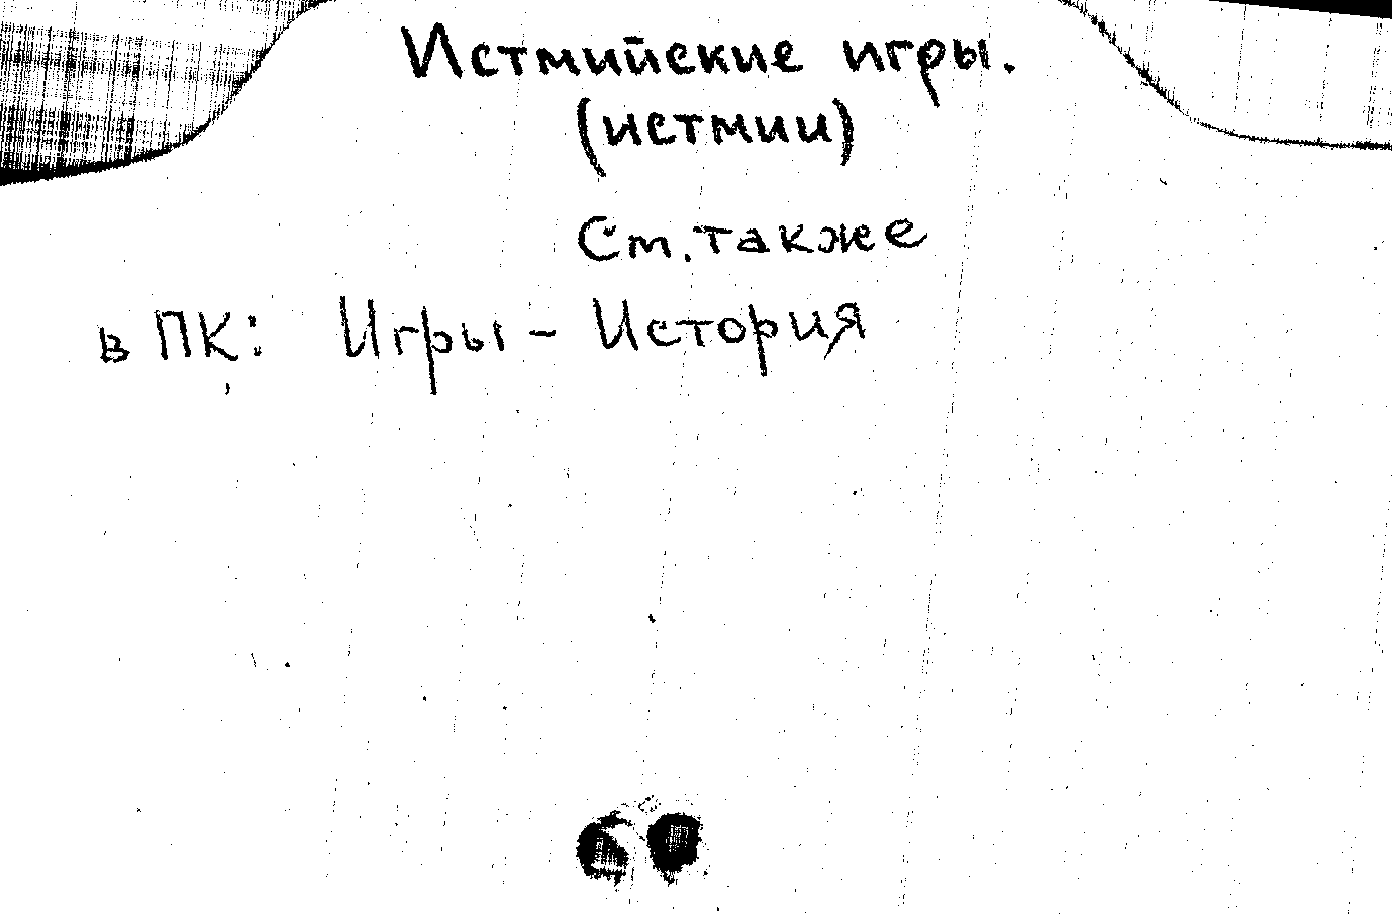 Истмийские игры.
(истмии)
См. также
в ПК: Игры - История